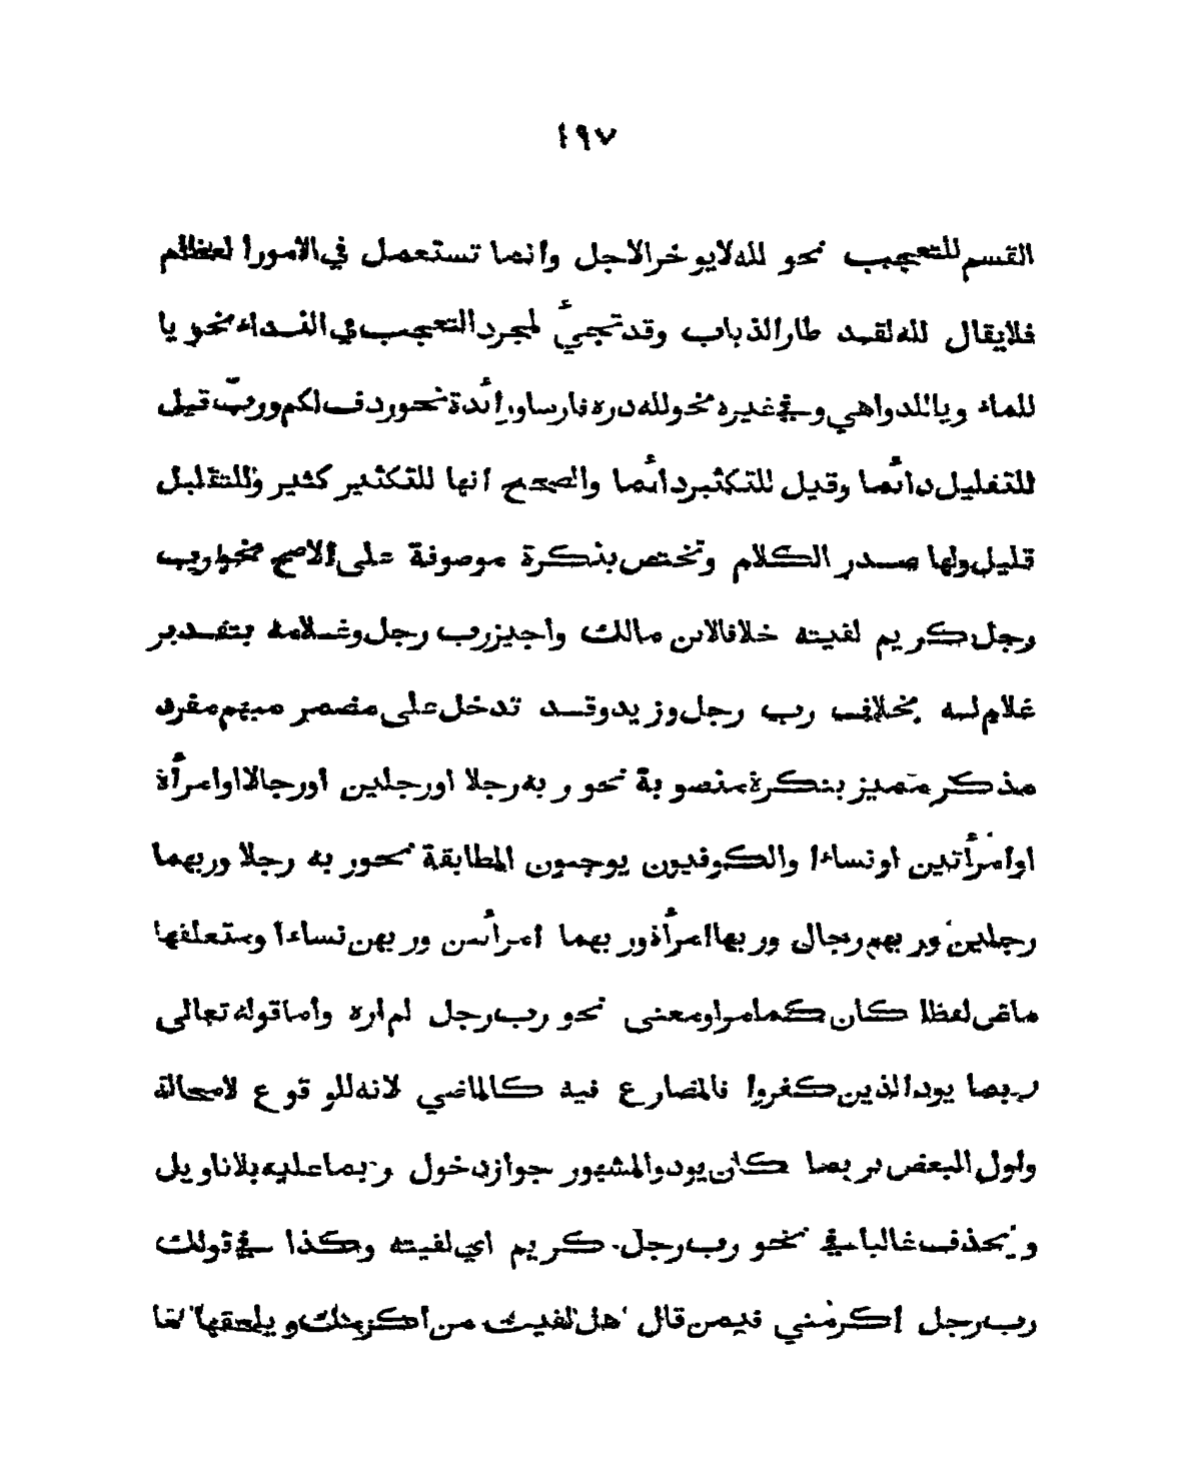 ١٩٧
القسم للتعجب نحو لله لا يوخر الاجل وانما تستعمل في الامور العظام
فلا يقال لله لقد طار الذباب وقد تجيُ لمجرد التعجب في النداء نحو يا
للماء ويا للدواهي وفي غيره نحو لله دره فارسا وزائدة نحو ردف لكم ورب قيل
للتقليل دائما وقيل للتكثير دائما والصحيح انها للتكثير كثير وللتقليل
قليل ولها صدر الكلام وتختص بنكرة موصوفة على الاصح نحو رب
رجل كريم لقيته خلافا لابن مالك واجيز رب رجل وغلامه بتقدير
غلام له بخلاف رب رجل وزيد وقد تدخل على مضمر مبهم مفرد
مذكر متميز بنكرة منصوبة نحو ربه رجلا او رجلين او رجالا او امرأة
او امرأتين او نساءا والكوفيون يوجبون المطابقة نحو ربه رجلا وربهما
رجلين وربهم رجال وربها امرأة وربهما امرأتين وربهن نساءا ومتعلقها
ماض لفظا كان كما مر او معنى نحو رب رجل لم اره واما قوله تعالى
ربما يود الذين كفروا فالمضارع فيه كالماضي لانه للوقوع لا محالة
واول البعض بربما كان يود والمشهور جواز دخول ربما عليه بلا تاويل
ويحذف غالبا في نحو رب رجل كريم اي لقيته وكذا في قولك
رب رجل اكرمني فيمن قال هل لقيت من اكرمك ويلحقها